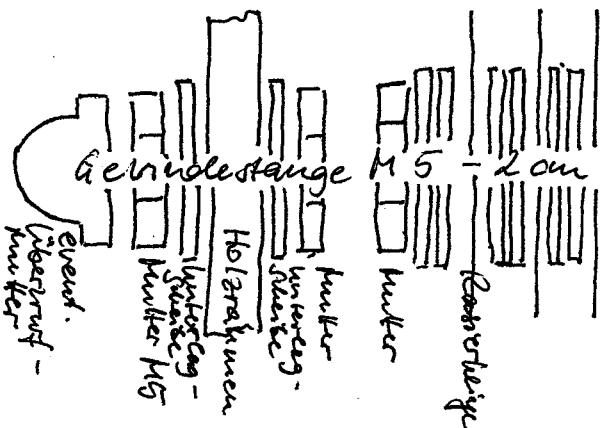 Gewindestange M 5 - 2 cm
event.
Überwurf-
mutter
Mutter M5
Unterleg-
scheibe
Holzrahmen
Unterleg-
scheibe
Mutter
Mutter
Rasierklinge